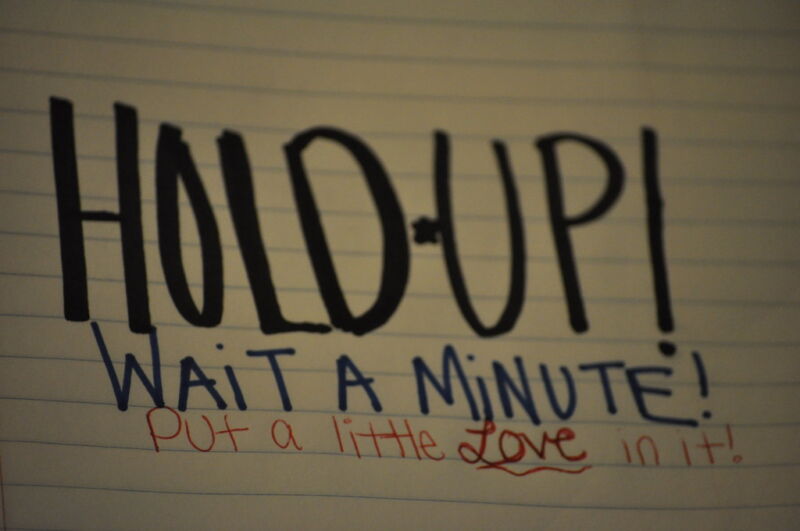 HOLD·UP!
WAiT A MiNUTE!
Put a little Love in it!